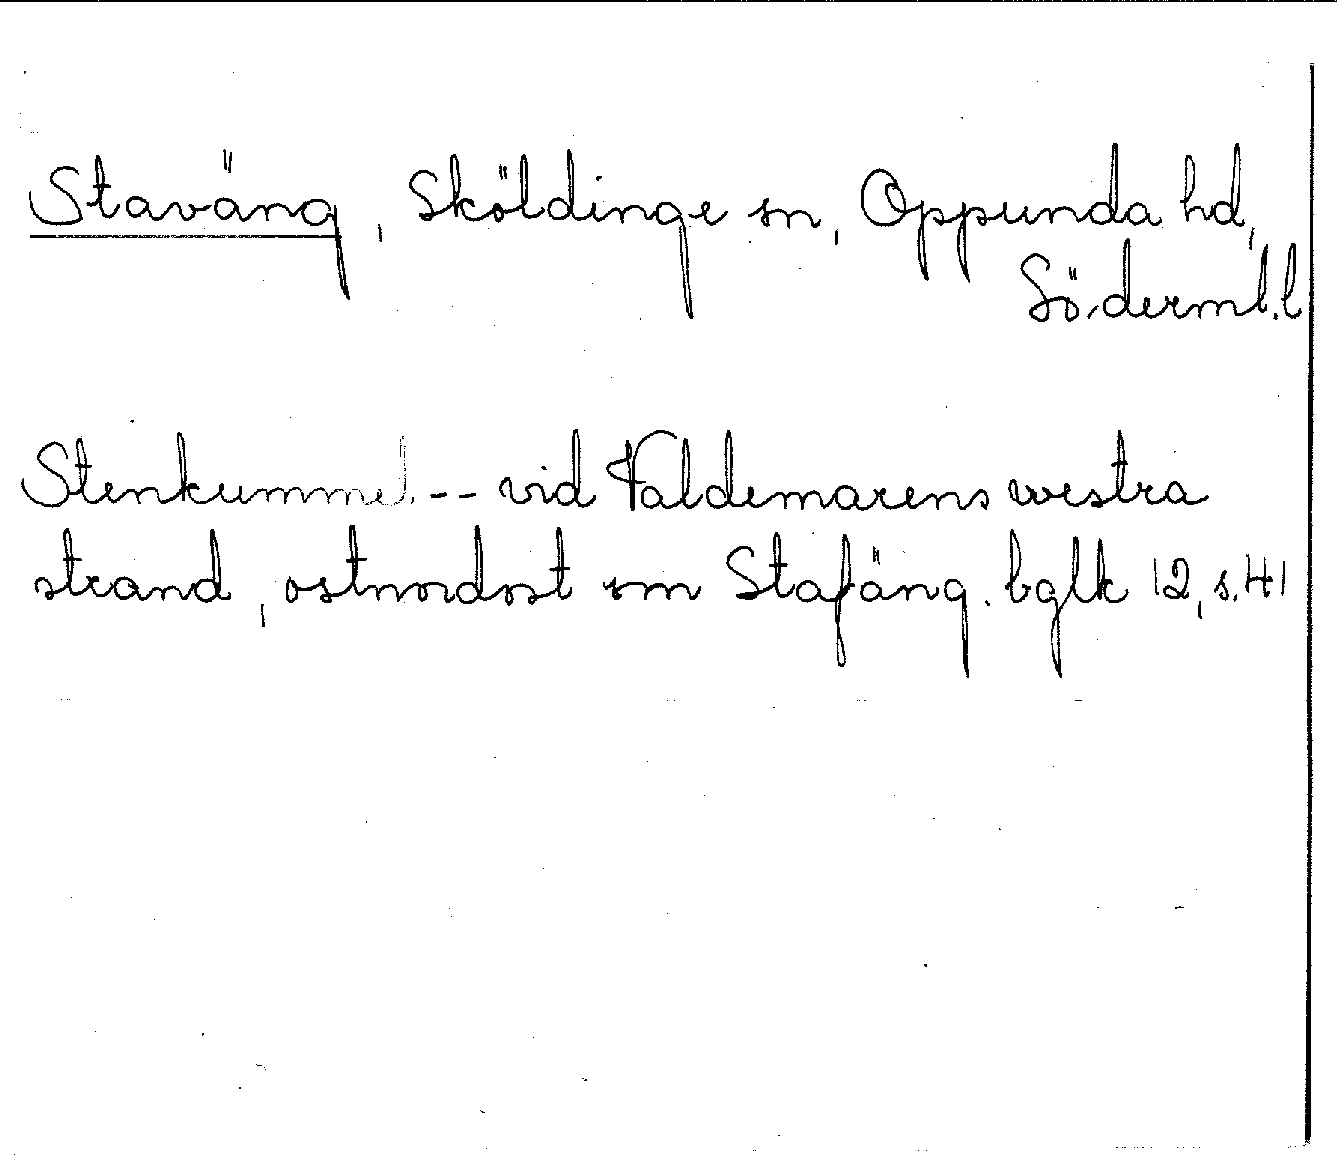 Staväng, Sköldinge sn, Oppunda hd,
Söderml.l
Stenkummel -- vid Valdemarens westra
strand, ostnordost om Stafäng. bglk 12, s.41